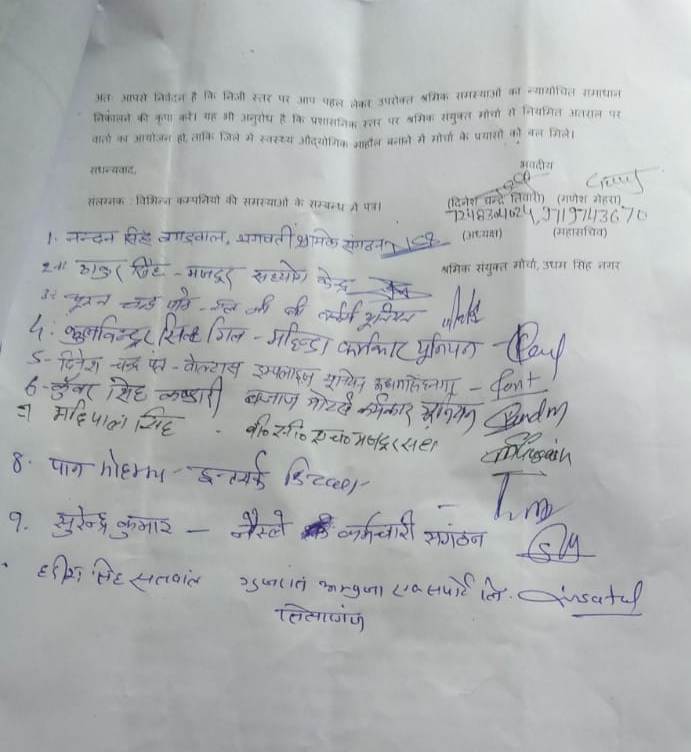 अतः आपसे निवेदन है कि निजी स्तर पर आप पहल लेकर उपरोक्त श्रमिक समस्याओं का न्यायोचित समाधान
निकालने की कृपा करें। यह भी अनुरोध है कि प्रशासनिक स्तर पर श्रमिक संयुक्त मोर्चा से नियमित अंतराल पर
वार्ता का आयोजन हो, ताकि जिले में स्वस्थ्य औद्योगिक माहौल बनाने में मोर्चा के प्रयासों को बल मिले।
सधन्यवाद,
भवदीय
संलग्नक : विभिन्न कम्पनियों की समस्याओं के सम्बन्ध में पत्र।
(दिनेश चन्द्र तिवारी) (गणेश मेहरा)
7248304024, 9719743670
(अध्यक्ष) (महासचिव)
श्रमिक संयुक्त मोर्चा, उधम सिंह नगर
1. नन्दन सिंह, भगवती श्रमिक संगठन
2. ठाकुर सिंह - मजदूर सहयोग केन्द्र
3. यूनियन
4. सिंह गिल - महिन्द्रा कर्मकार यूनियन -
5- दिनेश चन्द्र पंत - वोल्टास इम्पलाइज यूनियन - Pant
6- कुंवर सिंह बजाज मोटर्स कर्मकार यूनियन
7 महिपाल सिंह मजदूर सभा
8. पान मोहम्मद -
9. सुरेन्द्र कुमार - नैस्ले कर्मचारी संगठन
सिंह गुजरात अम्बुजा एक्सपोर्ट लि.
सितारगंज